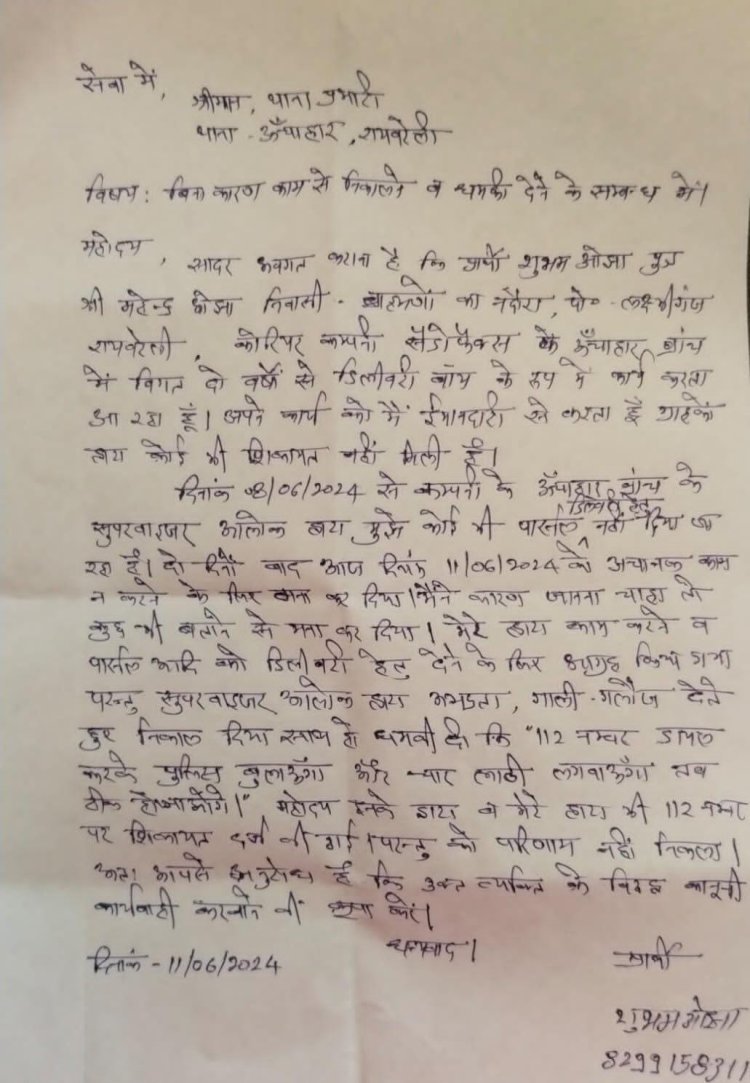 सेवा में,
श्रीमान, थाना प्रभारी
थाना - ऊँचाहार, रायबरेली
विषय : बिना कारण काम से निकालने व धमकी देने के सम्बन्ध में।
महोदय, सादर अवगत कराना है कि प्रार्थी शुभम ओझा पुत्र
श्री महेन्द्र ओझा निवासी - का पो० - लक्ष्मीगंज
रायबरेली, कोरियर कम्पनी के ऊँचाहार ब्रांच
में विगत दो वर्षों से डिलीवरी बॉय के रूप में कार्य करता
आ रहा हूँ। अपने कार्य को मैं ईमानदारी से करता हूँ ग्राहकों
द्वारा कोई भी शिकायत नहीं मिली है।
दिनांक 08/06/2024 से कम्पनी के ऊँचाहार ब्रांच के
सुपरवाइजर आलोक द्वारा मुझे कोई भी पार्सल डिलीवरी हेतु नहीं दिया जा
रहा है। दो दिनों बाद आज दिनांक 11/06/2024 को अचानक काम
न करने के लिए मना कर दिया। मैंने कारण जानना चाहा तो
कुछ भी बताने से मना कर दिया। मेरे द्वारा काम करने व
पार्सल आदि को डिलीवरी हेतु देने के लिए किया गया
परन्तु सुपरवाइजर आलोक द्वारा अभद्रता, गाली-गलौज देते
हुए निकाल दिया साथ ही धमकी दी कि "112 नम्बर डायल
करके पुलिस बुलाऊँगा और चार लाठी लगवाऊँगा तब
ठीक हो जाओगे।" महोदय इनके द्वारा व मेरे द्वारा भी 112 नम्बर
पर शिकायत दर्ज की गई। परन्तु को परिणाम नहीं निकला।
अतः आपसे अनुरोध है कि उक्त व्यक्ति के विरुद्ध कानूनी
कार्यवाही करवाने की कृपा करें।
धन्यवाद।
दिनांक - 11/06/2024
प्रार्थी
शुभम ओझा
8299158311